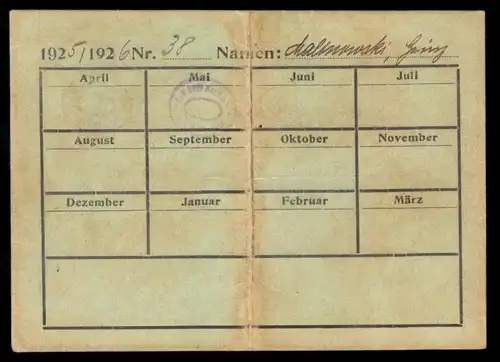 1925/1926 Nr. 38 Namen: Malinowski, Heinz
April Mai Juni Juli
August September Oktober November
Dezember Januar Februar März